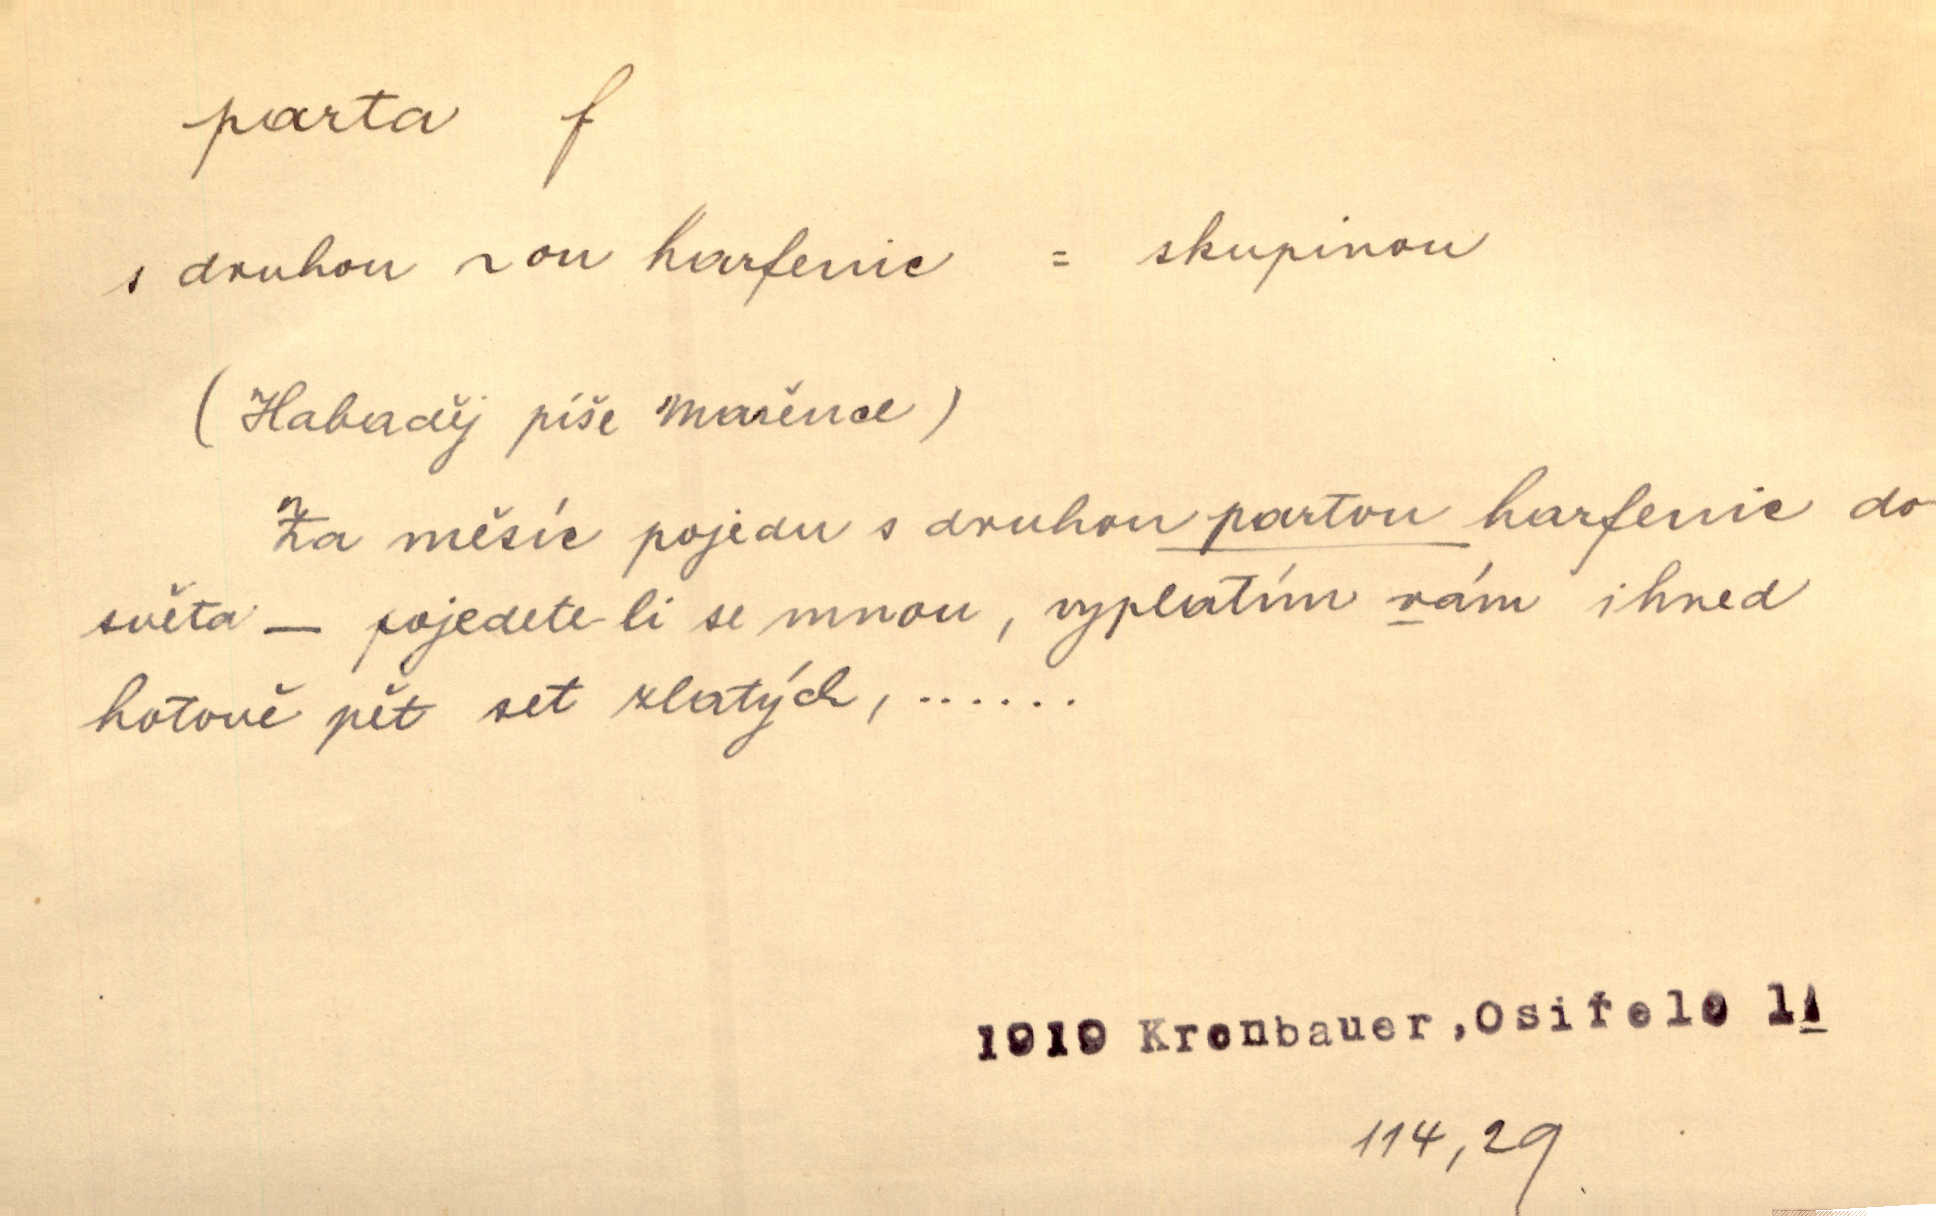 parta f
s druhou ~ou harfenic = skupinou
(Habaděj píše Mařence)
Za měsíc pojedu s druhou partou harfenic do
světa — pojedete-li se mnou, vyplatím vám ihned
hotově pět set zlatých, ......
1919 Kronbauer, Osiřelo
114,29